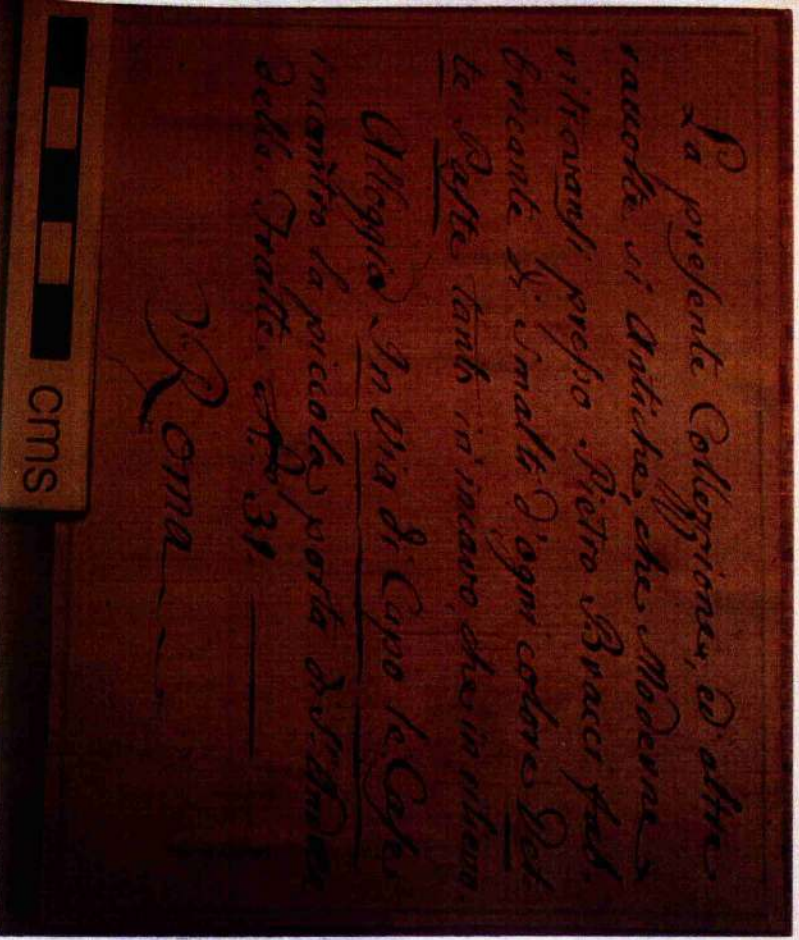 La presente Collezzione, ed altre
raccolte sì Antiche, che Moderne
ritrovansi presso Pietro Bracci fab.
bricante di Smalti d'ogni colore Det.
te Paste tanto in incavo che in rilievo.
Alloggia In Via di Capo le Case
incontro la piccola porta di S. Andrea
delle Fratte N.º 31
Roma
cms